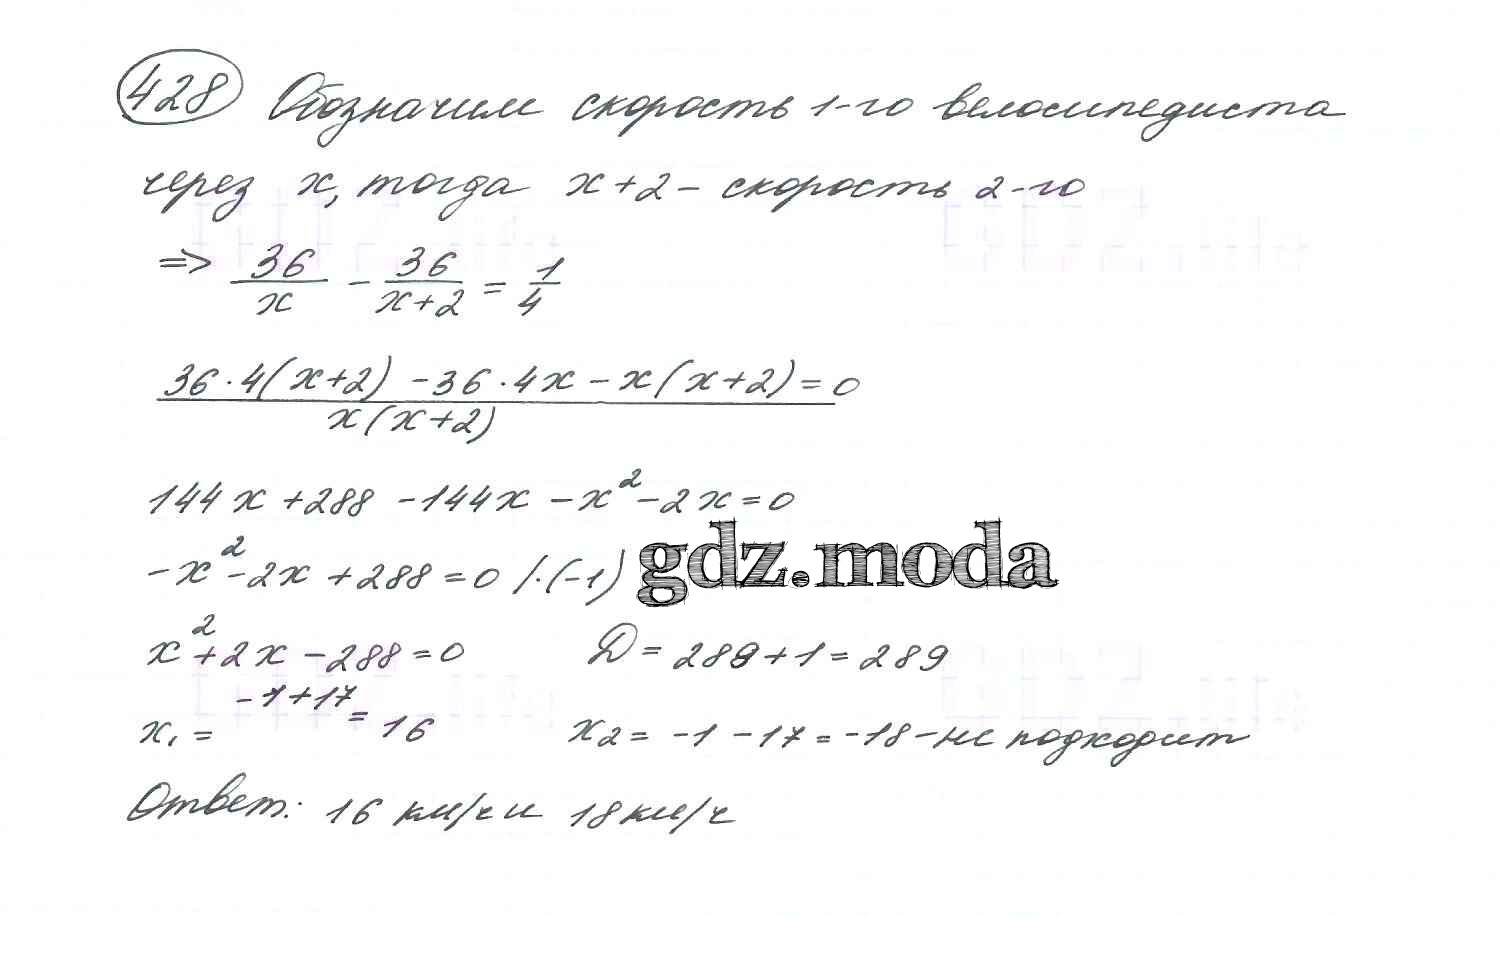 428 Обозначим скорость 1-го велосипедиста
через x, тогда x+2 – скорость 2-го
=> 36/x - 36/(x+2) = 1/4
36·4(x+2) - 36·4x - x(x+2) = 0
x(x+2)
144x + 288 - 144x - x² - 2x = 0
-x² - 2x + 288 = 0 /·(-1)
gdz.moda
x² + 2x - 288 = 0 D = 288 + 1 = 289
x₁ = -1+17 = 16 x₂ = -1 - 17 = -18 - не подходит
Ответ: 16 км/ч и 18 км/ч